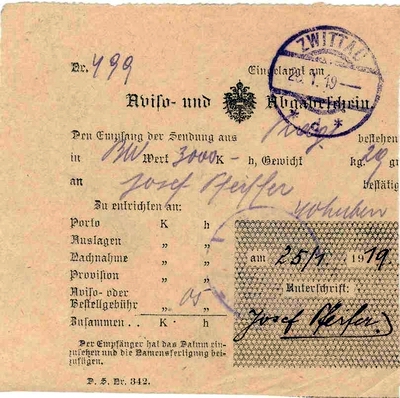 ZWITTAU
25. 1. 19
* d *
Nr. 499 Eingelangt am
Aviso- und Abgabeschein.
Den Empfang der Sendung aus Prag bestehen
in BW Wert 3000 K – h, Gewicht kg 20 gr
an Josef Pfeiffer bestätig
Zu entrichten an:
Porto K h
Auslagen „ „
Nachnahme „ „
Provision „ „
Aviso- oder
Bestellgebühr „ 05 „
Zusammen . . K · h
am 25/1 1919
Unterschrift:
Josef Pfeifer
Der Empfänger hat das Datum ein-
zusetzen und die Namensfertigung bei-
zufügen.
D. S. Nr. 342.